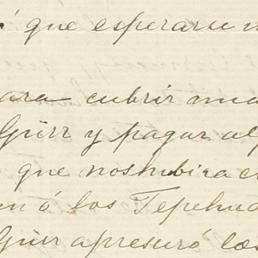 é que esperaru
para cubrir
Gürr y pagar al
que nos hubira
n á los Tepehua
Gürr apresuró las